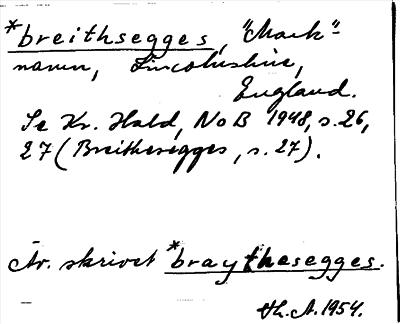 *breithsegges, "Mark"-
namn, Lincolnshire,
England.
Se Kr. Hald, NoB 1948, s. 26,
27 (Breithesegges, s. 27).
Äv. skrivet *braythesegges.
Th. A. 1954.